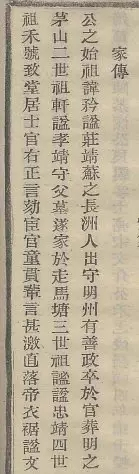 家傳
公之始祖諱矜謚莊靖蘇之長洲人出守明州有善政卒於官葬明之
茅山二世祖軒謚孝靖守父墓遂家於走馬塘三世祖謐謚忠靖四世
祖禾號致堂居士官右正言劾宦官童貫輩言甚激直落帝衣裾謚文